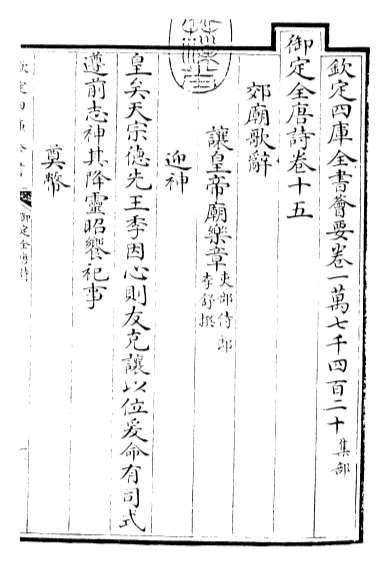 欽定四庫全書薈要卷一萬七千四百二十 集部
御定全唐詩卷十五
郊廟歌辭
讓皇帝廟樂章 吏部侍郎李舒撰
迎神
皇矣天宗德先王季因心則友克讓以位爰命有司式
遵前志神其降靈昭饗祀事
奠幣